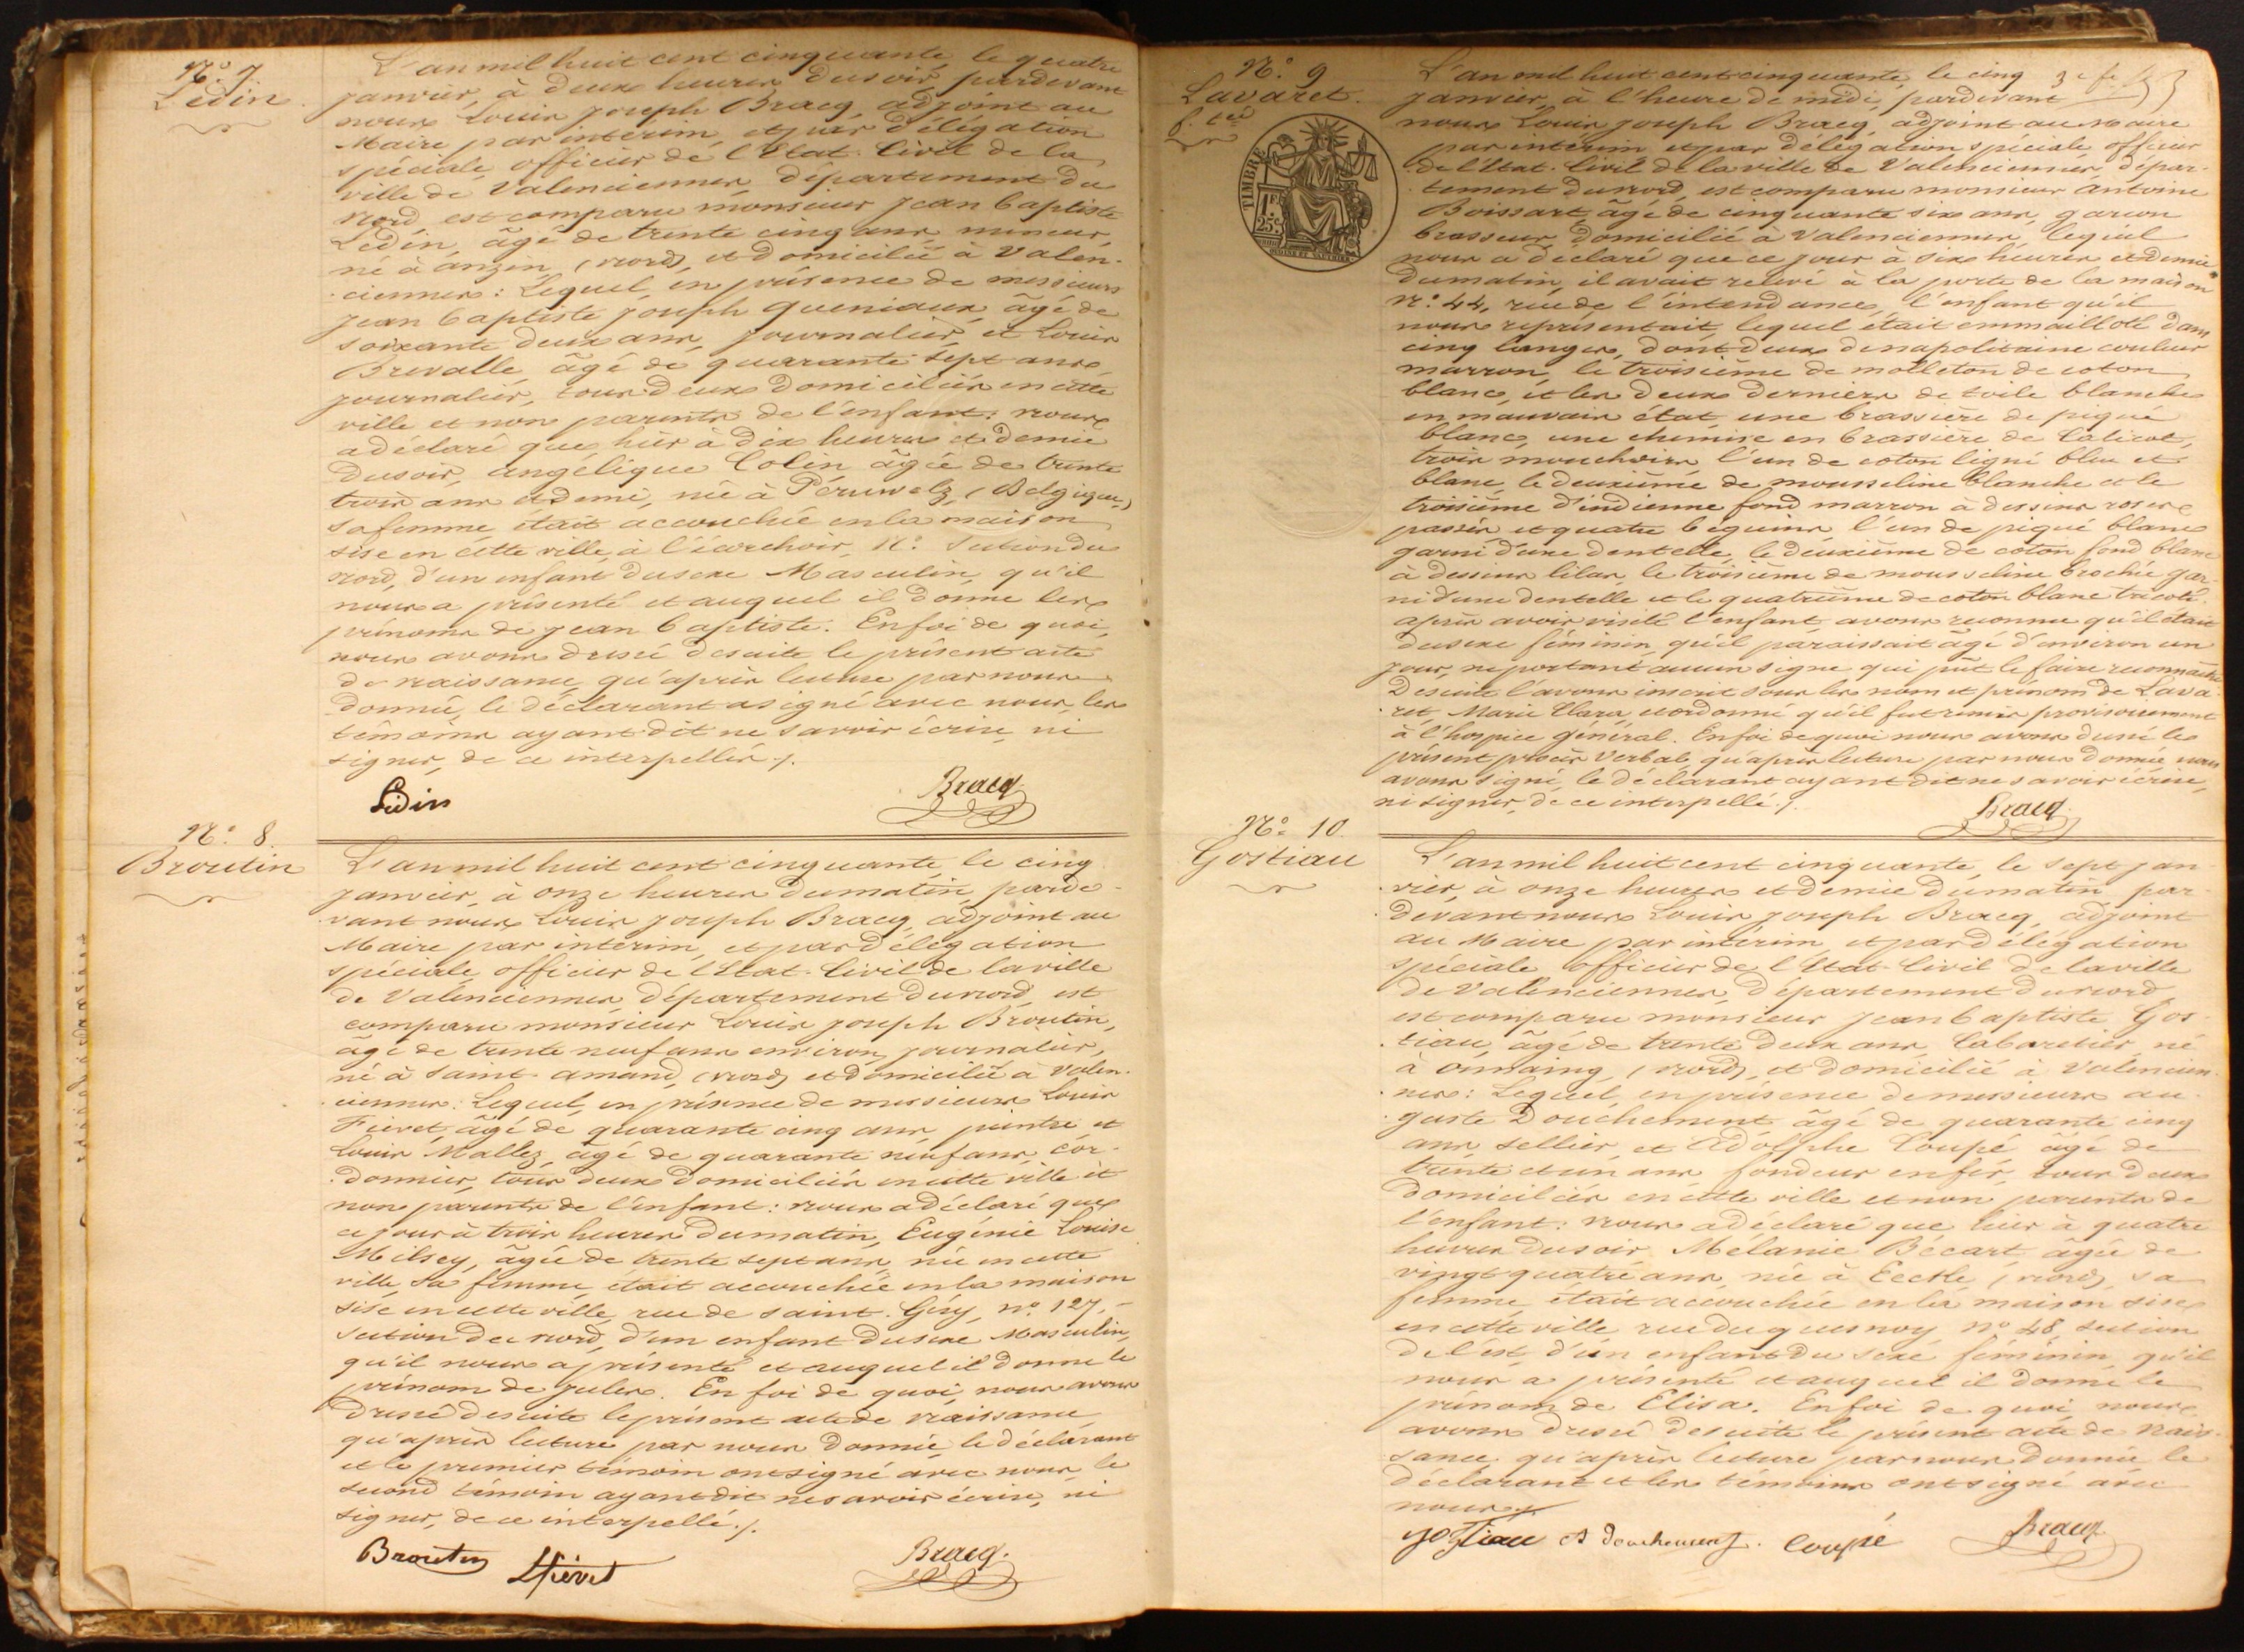 N.° 7.
Ledin.
L'an mil huit cent cinquante, le quatre
janvier, à deux heures du soir, pardevant
nous Louis Joseph Bracq, adjoint au
Maire par intérim, et par délégation
spéciale, officier de l'Etat-Civil de la
ville de Valenciennes, département du
Nord, est comparu monsieur Jean Baptiste
Ledin, âgé de trente cinq ans, mineur,
né à anzin, (nord), et domicilié à Valen-
ciennes: Lequel, en présence de messieurs
Jean Baptiste Joseph Queniaux, âgé de
soixante deux ans, journalier, et Louis
Brevalle, âgé de quarante sept ans,
journalier, tous deux domiciliés en cette
ville et non parents de l'enfant: nous
a déclaré que, hier à dix heures et demie
du soir, angélique Colin, âgée de trente
trois ans et demi, née à Péruwelz, (Belgique,)
sa femme, était accouchée en la maison
sise en cette ville, à l'écorchoir, N.° Section du
nord, d'un enfant du sexe Masculin, qu'il
nous a présenté et auquel il donne les
prénoms de Jean Baptiste. En foi de quoi,
nous avons dressé desuite le présent acte
de naissance, qu'après lecture par nous
donnée, le déclarant a signé avec nous, les
témoins ayant dit ne savoir écrire, ni
signer, de ce interpellés ./.
Ledin
Bracq
N.° 8.
Broutin
L'an mil huit cent cinquante, le cinq
janvier, à onze heures du matin, parde-
vant nous Louis Joseph Bracq, adjoint au
Maire par intérim, et par délégation
spéciale, officier de l'Etat-Civil de la ville
de Valenciennes, département du nord, est
comparu monsieur Louis Joseph Broutin,
âgé de trente neuf ans environ, journalier,
né à Saint-amand, (nord), et domicilié à Valen-
ciennes: Lequel, en présence de messieurs Louis
Fievet, âgé de quarante cinq ans, peintre, et
Louis Mallez, âgé de quarante neuf ans, cor-
donnier, tous deux domiciliés en cette ville et
non parents de l'enfant: nous a déclaré que
ce jour à trois heures du matin, Eugénie Louise
Milsey, âgée de trente sept ans, née en cette
ville, sa femme, était accouchée en la maison
sise en cette ville, rue de Saint-Géry, n° 127,
section du nord, d'un enfant du sexe Masculin,
qu'il nous a présenté et auquel il donne le
prénom de Jules. En foi de quoi, nous avons
dressé desuite le présent acte de naissance,
qu'après lecture par nous donnée, le déclarant
et le premier témoin ont signé avec nous, le
second témoin ayant dit ne savoir écrire, ni
signer, de ce interpellé ./.
Broutin LFiévet
Bracq.
N.° 9
Lavaret.
L'an mil huit cent cinquante, le cinq
janvier, à l'heure de midi, pardevant
nous Louis Joseph Bracq, adjoint au Maire
par intérim, et par délégation spéciale, officier
de l'Etat-Civil de la ville de Valenciennes, dépar-
tement du nord, est comparu monsieur antoine
Boissart, âgé de cinquante six ans, garçon
brasseur, domicilié à Valenciennes, lequel
nous a déclaré que ce jour à six heures et demie
du matin, il avait relevé à la porte de la maison
N.° 44, rue de l'intendance, l'enfant qu'il
nous représentait, lequel était emmailloté dans
cinq langes, dont deux de napolitaine couleur
marron, le troisième de molleton de coton
blanc, et les deux derniers de toile blanche
en mauvais état, une brassière de piqué
blanc, une chemise en brassière de Calicot,
trois mouchoirs l'un de coton ligné bleu et
blanc, le deuxième de mousseline blanche et le
troisième d'indienne fond marron à dessins roses
passés, et quatre béguins l'un de piqué blanc
garni d'une dentelle, le deuxième de coton fond blanc
à dessins lilas, le troisième de mousseline brochée gar-
ni d'une dentelle et le quatrième de coton blanc tricoté.
après avoir visité l'enfant, avons reconnu qu'il était
du sexe féminin, qu'il paraissait âgé d'environ un
jour, ne portant aucun signe qui pût le faire reconnaître
Desuite l'avons inscrit sous les nom et prénom de Lava-
ret, Marie Clara, et ordonné qu'il fut remis provisoirement
à l'hospice général. En foi de quoi nous avons dressé le
présent procès verbal, qu'après lecture par nous donnée, nous
avons signé, le déclarant ayant dit ne savoir écrire,
ni signer, de ce interpellé ./.
Bracq
TIMBRE
1F.
25c.
N.° 10.
Gostiau
L'an mil huit cent cinquante, le sept jan-
vier, à onze heures et demie du matin, par-
devant nous Louis Joseph Bracq, adjoint
au Maire par intérim, et par délégation
spéciale officier de l'Etat-Civil de la ville
de Valenciennes, département du nord,
est comparu monsieur Jean Baptiste Gos-
tiau, âgé de trente deux ans, Cabaretier, né
à Onnaing, (nord), et domicilié à Valencien-
nes: Lequel, en présence de messieurs au-
guste Douchement, âgé de quarante cinq
ans, sellier, et Adolphe Coupé, âgé de
trente et un ans, fondeur en fer, tous deux
domiciliés en cette ville et non parents de
l'enfant: nous a déclaré que hier à quatre
heures du soir, Mélanie Bécart, âgée de
vingt quatre ans, née à Eecke, (nord), sa
femme, était accouchée en la maison sise
en cette ville, rue du quesnoy, N° 48, section
de l'est, d'un enfant du sexe féminin, qu'il
nous a présenté et auquel il donne le
prénom de Elisa. En foi de quoi, nous
avons dressé desuite le présent acte de Nais-
sance, qu'après lecture par nous donnée, le
déclarant et les témoins ont signé avec
nous ./.
gostiau A douchement. Coupé
Bracq